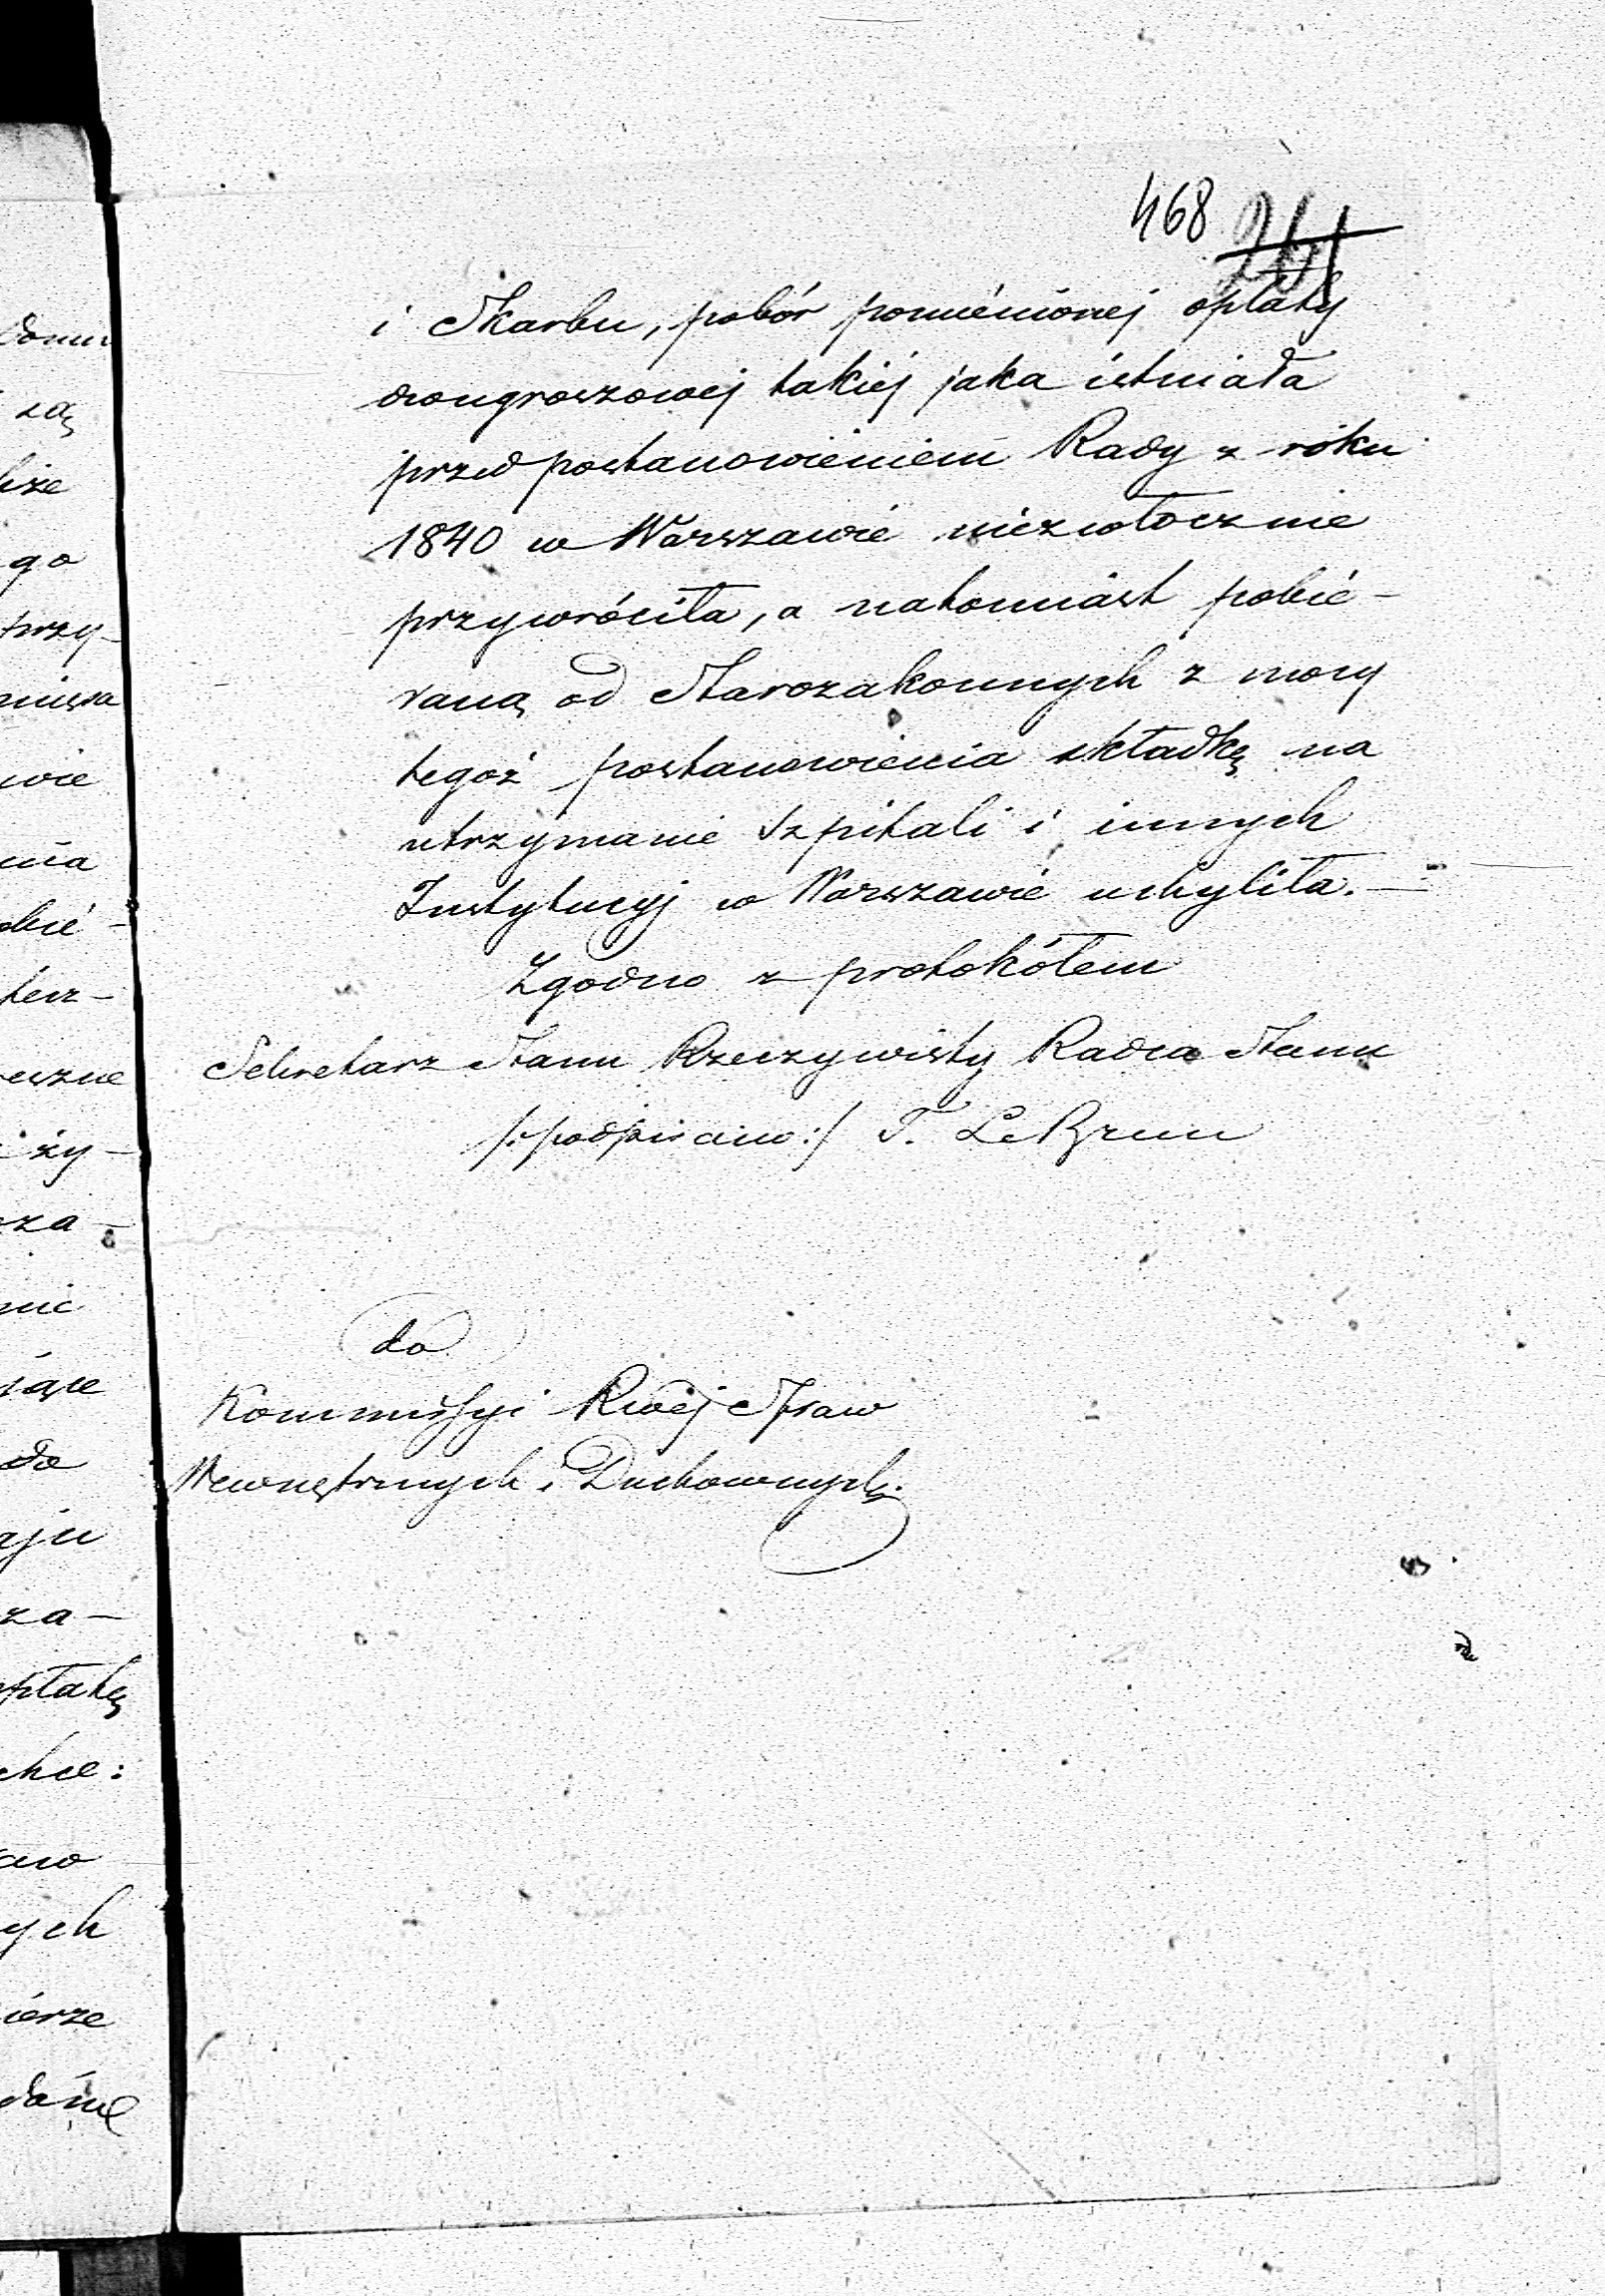 468
i Skarbu, pobór pomiénionej opłaty
dwugroszowej takiéj jaka istniała
przed postanowieniem Rady z roku
1840 w Warszawie niezwłocznie
przywróciła, a natomiast pobié-
raną od Starozakonnych z mocy
tegoż postanowienia składkę na
utrzymanie Szpitali i innych
Instytucyj w Warszawie uchyliła.—
Zgodno z protokółem
Sekretarz Stanu Rzeczywisty Radca Stanu
/:podpisano:/ T. LeBrun
do
Kommissyi Rwéj Spraw
Wewnętrznych i Duchownych.
zą
go
przy-
wie
nia
ży-
za-
do
za-
ych